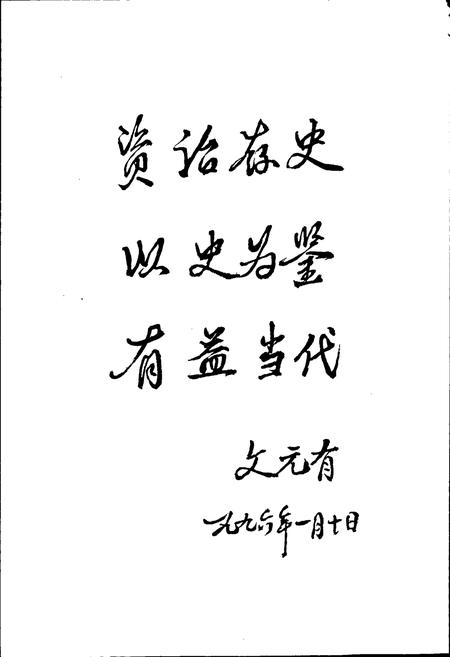 资治存史
以史为鉴
有益当代
文元有
一九九六年一月十日